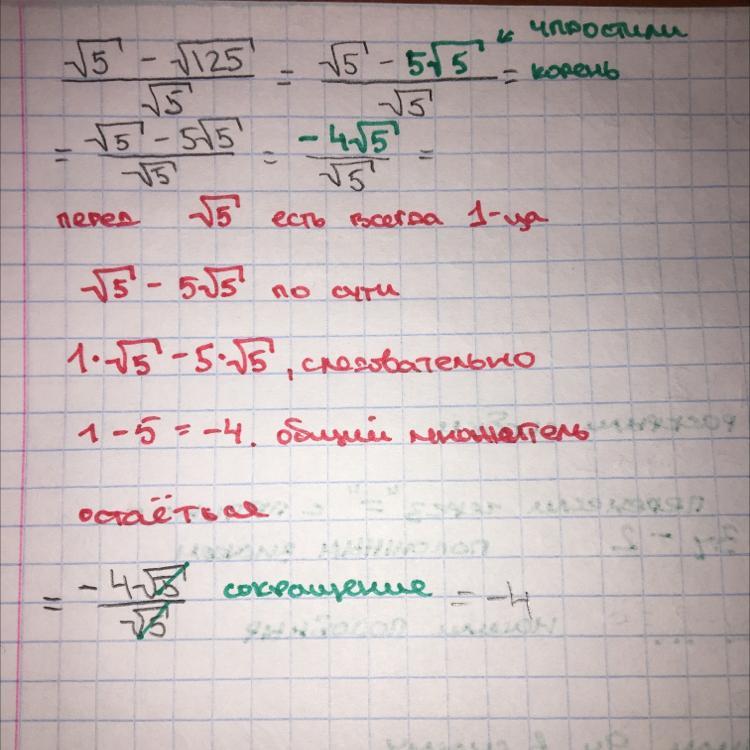 (√5 - √125)/√5 = (√5 - 5√5)/√5 = упростили корень
= (√5 - 5√5)/√5 = (-4√5)/√5 =
перед √5 есть всегда 1-ца
√5 - 5√5 по сути
1·√5 - 5·√5, следовательно
1 - 5 = -4. общий множитель
остаёться
= (-4√5)/√5 сокращение = -4